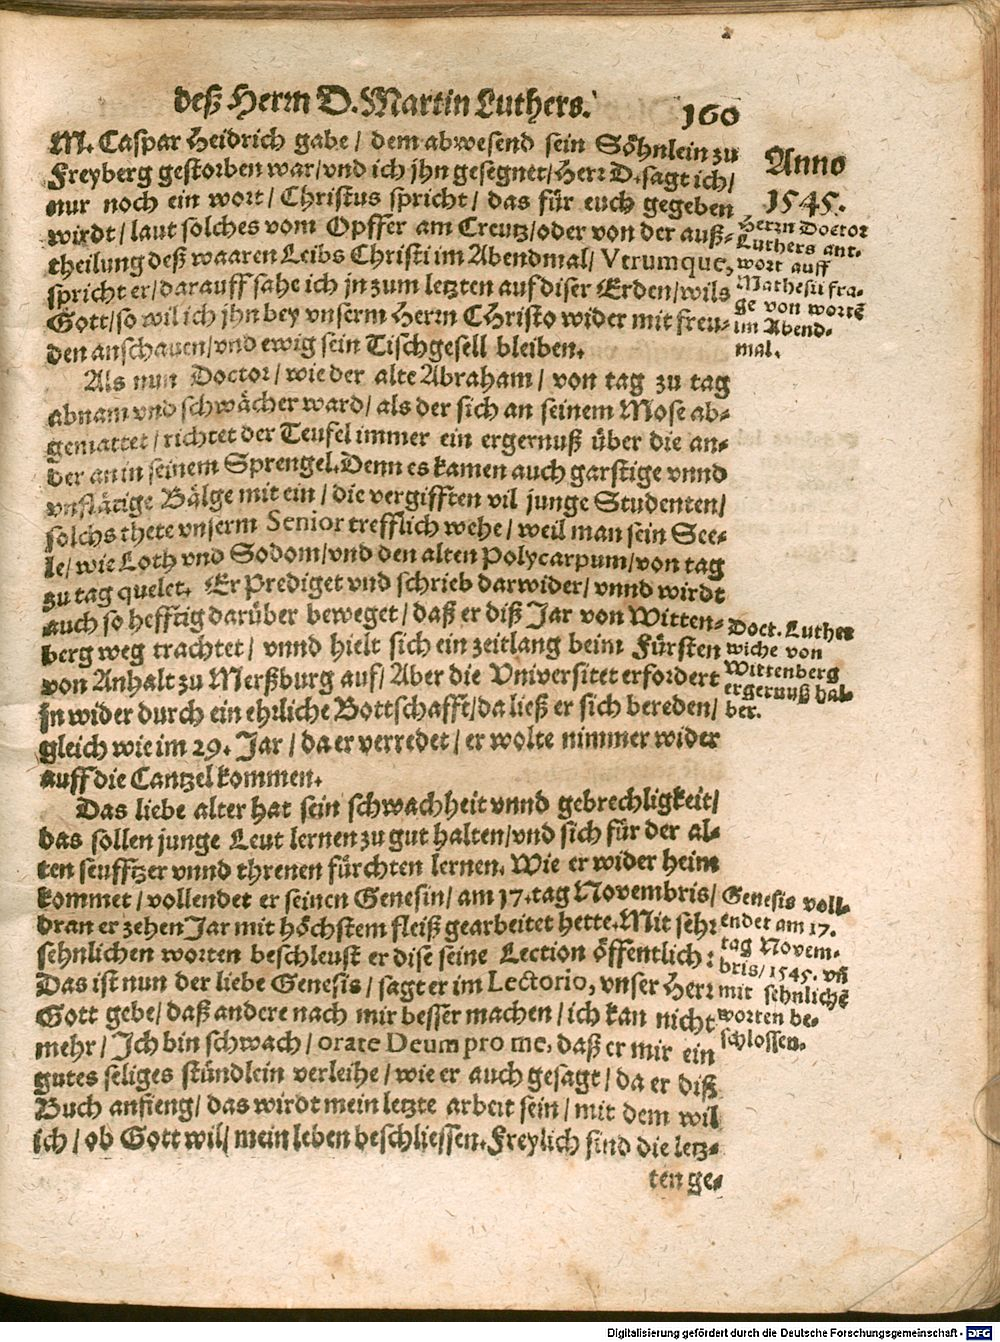 deß Herrn D. Martin Luthers.
160
M. Caspar Heidrich gabe / dem abwesend sein Söhnlein zu
Freyberg gestorben war/vnd ich jhn gesegnet/Herr D. sagt ich/
nur noch ein wort/ Christus spricht / das für euch gegeben
wirdt / laut solches vom Opffer am Creutz/oder von der auß-
theilung deß waaren Leibs Christi im Abendmal/ Vtrumque,
spricht er/darauff sahe ich jn zum letzten auf diser Erden/wils
Gott/so wil ich jhn bey vnserm Herrn Christo wider mit freu-
den anschauen/vnd ewig sein Tischgesell bleiben.
Als nun Doctor / wie der alte Abraham / von tag zu tag
abnam vnd schwächer ward/ als der sich an seinem Mose ab-
gemattet / richtet der Teufel immer ein ergernuß über die an-
der an in seinem Sprengel. Denn es kamen auch garstige vnnd
vnflätige Bälge mit ein / die vergifften vil junge Studenten/
solchs thete vnserm Senior trefflich wehe / weil man sein See-
le/ wie Loth vnd Sodom/vnd den alten Polycarpum/von tag
zu tag quelet. Er Prediget vnd schrieb darwider/ vnnd wirdt
auch so hefftig darüber beweget / daß er diß Jar von Witten-
berg weg trachtet / vnnd hielt sich ein zeitlang beim Fürsten
von Anhalt zu Merßburg auf/ Aber die Vniversitet erfordert
jn wider durch ein ehrliche Bottschafft/da ließ er sich bereden/
gleich wie im 29. Jar / da er verredet / er wolte nimmer wider
auff die Cantzel kommen.
Das liebe alter hat sein schwachheit vnnd gebrechligkeit/
das sollen junge Leut lernen zu gut halten/vnd sich für der al-
ten seufftzer vnnd threnen fürchten lernen. Wie er wider heim
kommet / vollendet er seinen Genesin/ am 17. tag Novembris/
dran er zehen Jar mit höchstem fleiß gearbeitet hette. Mit sehr
sehnlichen worten beschleust er dise seine Lection öffentlich:
Das ist nun der liebe Genesis / sagt er im Lectorio, vnser Herr
Gott gebe/ daß andere nach mir besser machen / ich kan nicht
mehr / Ich bin schwach / orate Deum pro me, daß er mir ein
gutes seliges stündlein verleihe / wie er auch gesagt / da er diß
Buch anfieng/ das wirdt mein letzte arbeit sein / mit dem wil
ich / ob Gott wil/ mein leben beschliessen. Freylich sind die letz-
ten ge-
Anno
1545.
Herrn Doctor
Luthers ant-
wort auff
Mathesii fra-
ge von wortē
im Abend-
mal.
Doct. Luther
wiche von
Wittenberg
ergernuß hal-
ber.
Genesis voll-
endet am 17.
tag Novem-
bris/ 1545. vñ
mit sehnlichē
worten be-
schlossen.
Digitalisierung gefördert durch die Deutsche Forschungsgemeinschaft - DFG